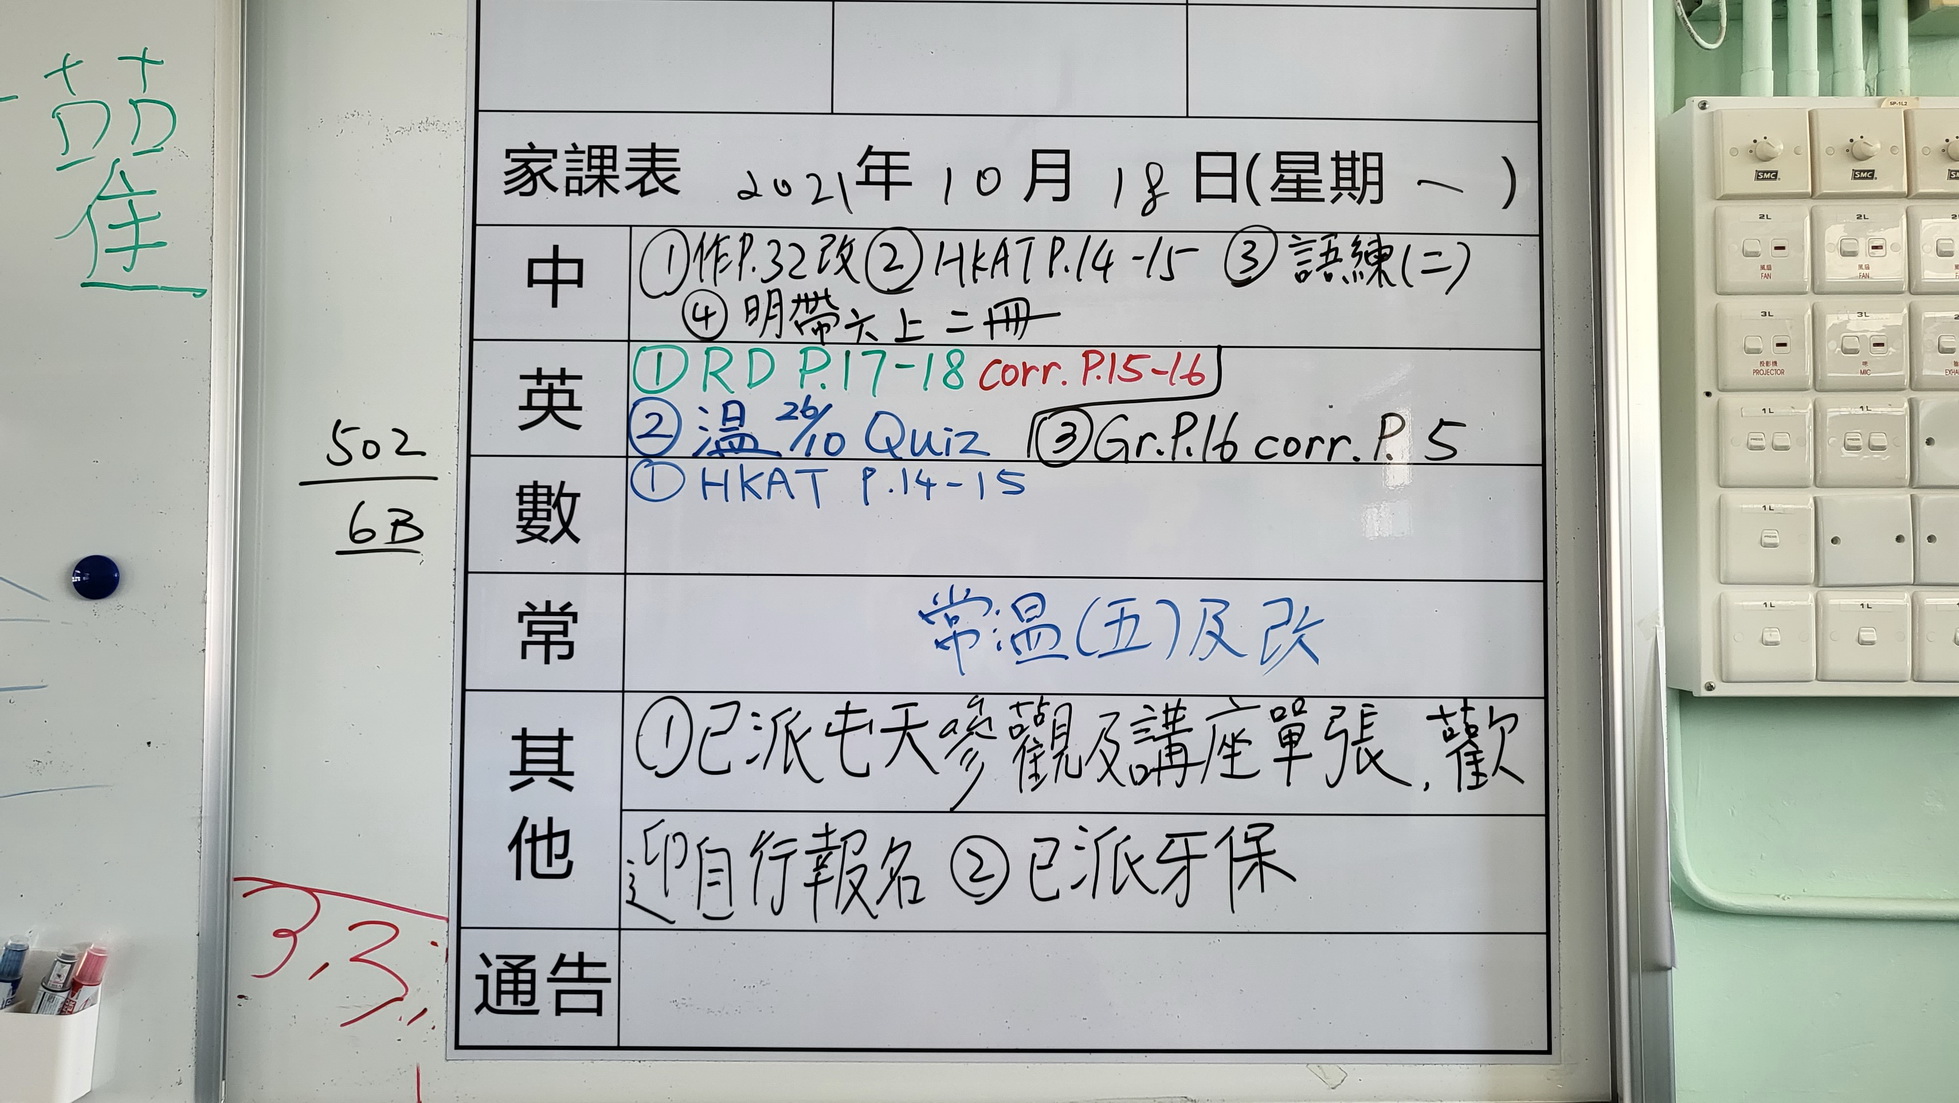 家課表 2021年10月18日(星期一)
中
①作P.32改②HKAT P.14-15 ③語練(二)
④明帶六上二冊
英
①RD P.17-18 corr. P.15-16
②溫26/10 Quiz ③Gr.P.16 corr. P. 5
數
①HKAT P.14-15
常
常溫(五)及改
其他
①已派屯天參觀及講座單張,歡
迎自行報名 ②已派牙保
通告
502
6B
3,3,
SMC
SMC
2L
2L
風扇
FAN
風扇
FAN
3L
3L
投影機
PROJECTOR
咪
MIC
1L
1L
1L
1L
1L